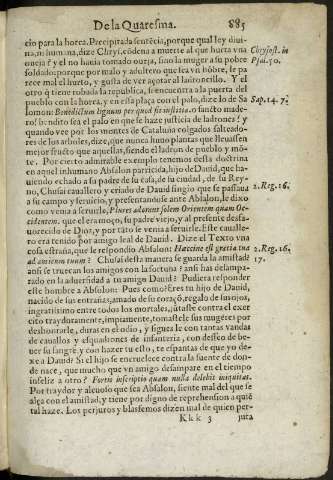 De la Quaresma. 885
cio para la horca. Precipitada sentẽcia, porque qual ley diui-
na, ni humana, dize Chrys. cõdena a muerte al que hurta vna
oueja? y el no hauia tomado oueja, sino la muger a su pobre
soldado: porque por malo y adultero que sea vn hõbre, le pa-
rece mal el hurto, y gusta de ver açotar al ladroncillo. Y el
otro q̃ tiene robada la republica, se encuentra a la puerta del
pueblo con la horca, y en esta plaça con el palo, dize lo de Sa
lomon: Benedictum lignum per quod fit iustitia. o sancto made-
ro! bendito sea el palo en que se haze justicia de ladrones! y
quando vee por los montes de Cataluña colgados salteado-
res de los arboles, dize, que nunca huuo plantas que lleuassen
mejor fructo que aquellas, siendo el ladron de pueblo y mõ-
te. Por cierto admirable exemplo tenemos desta doctrina
en aquel inhumano Absalon parricida, hijo de Dauid, que ha-
uiendo echado a su padre de su casa, de su ciudad, de su Rey-
no, Chusai cauallero y criado de Dauid fingio que se passaua
a su campo y seruicio, y presentandose ante Absalon, le dixo
como venia a seruirle, Plures adorant solem Orientem quam Oc-
cidentem. que el era moço, su padre viejo, y al presente desfa-
uorecido de Dios, y por tãto se venia a seruirle. Este caualle-
ro era tenido por amigo leal de Dauid. Dize el Texto vna
cosa estraña, que le respondio Absalon: Haeccine est gratia tua
ad amicum tuum? Chusai desta manera se guarda la amistad?
ansi se truecan los amigos con la fortuna? ansi has delampa-
rado en la aduersidad a tu amigo Dauid? Pudiera responder
este hombre a Absalon: Pues como? Eres tu hijo de Dauid,
nacido de sus entrañas, amado de su coraçõ, regalo de sus ojos,
ingratissimo entre todos los mortales, jũtaste contra el exer
cito traydoramente, impiamente, tomaste le sus mugeres por
deshonrarle, duras en el odio, y sigues le con tantas vandas
de cauallos y esquadrones de infanteria, con desseo de be-
uer su sangre y con hazer tu esto, te espantas de que yo de-
xe a Dauid? Si el hijo se encruelece contra la fuente de don-
de nace, que mucho que vn amigo desampare en el tiempo
infeliz a otro? Fortis inscriptio quam nulla delebit iniquitas.
Por traydor y aleuoso que sea Absalon, siente mal del que se
alça con el amistad, y tiene por digno de reprehension a quie
tal haze. Los perjuros y blasfemos dizen mal de quien per-
Kkk 3 jura
Chrysost. in
Psal. 50.
Sap. 14. 7.
2. Reg. 16.
2. Reg. 16,
17.